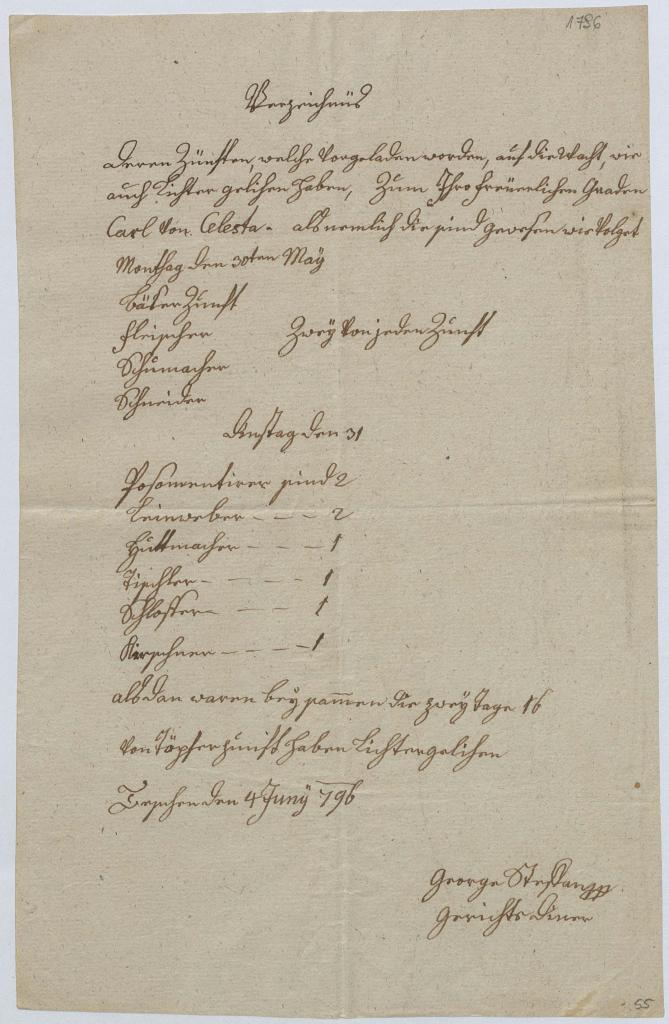 1796
Verzeichnüs
deren Zünften, welche Vorgeladen worden, auf die Wacht, wie
auch Lichter gelihen haben, Zum Ihro freüerlichen Gnaden
Carl Von Celesta - als nemlich die sind gewesen wie Volget
Monthag den 30ten Maÿ
Bäker Zunft
Fleischer Zweÿ Von jeden Zunft
Schumacher
Schneider
Dinstag den 31
Posomentirer sind 2
Leinweber - - - 2
Huttmacher - - - 1
Tischler - - - - 1
Schlosser - - - 1
Kirschner - - - 1
alsdan waren beÿsam̄en die zweÿ Tage 16
Von Töpfer zunft haben Lichter gelihen
Teschen den 4 Junÿ 796
George
Gerichts Diner
55